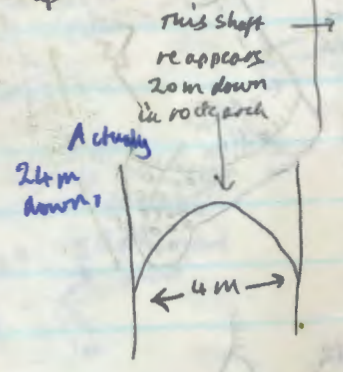 This shaft
reappears
20m down
in rock arch
Actually
24m
down
4m